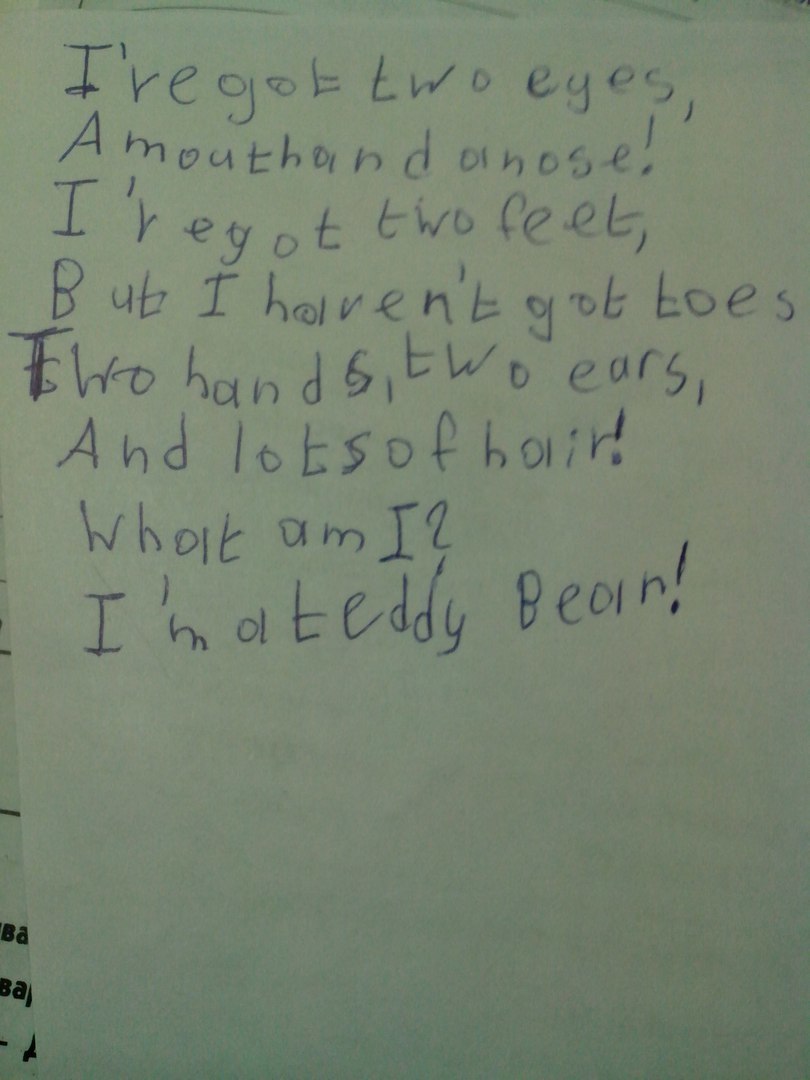 I've got two eyes,
A mouth and a nose!
I've got two feet,
But I haven't got toes
Two hands, two ears,
And lots of hair!
What am I?
I'm a teddy Bear!
ва
вар
- д